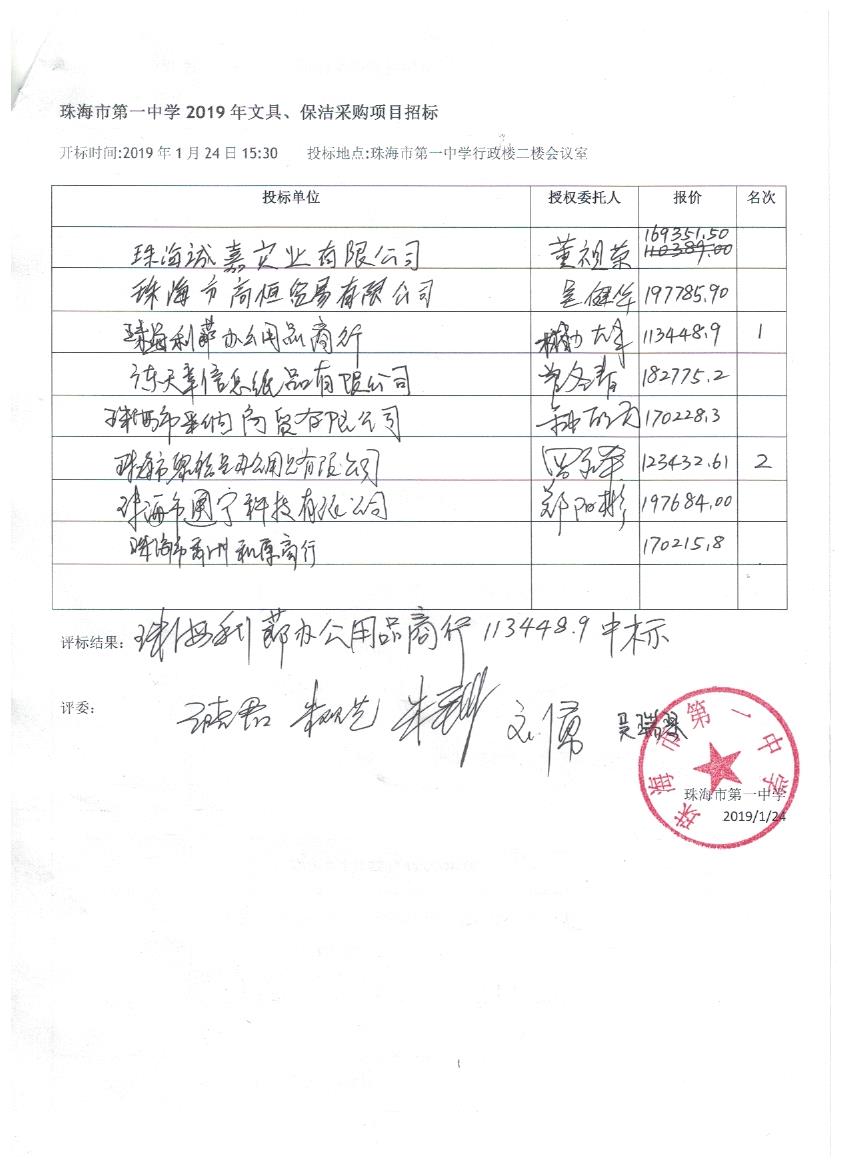 珠海市第一中学 2019 年文具、保洁采购项目招标
开标时间:2019 年 1 月 24 日 15:30 投标地点:珠海市第一中学行政楼二楼会议室
投标单位 授权委托人 报价 名次
169351.50
珠海诚嘉实业有限公司 董祖荣 110389.00
珠海市高恒贸易有限公司 吴健华 197785.90
珠海利 办公用品商行 113448.9 1
天章信息纸品有限公司 曾冬春 182775.2
珠海市采纳商贸有限公司 170228.3
珠海市 办公用品有限公司 123432.61 2
珠海市 宁科技有限公司 郑阳彬 197684.00
珠海市香洲 商行 170215.8
评标结果: 珠海利 办公用品商行 113448.9 中标
评委: 刘勇 吴瑞
珠海市第一中学
珠海市第一中学
2019/1/24